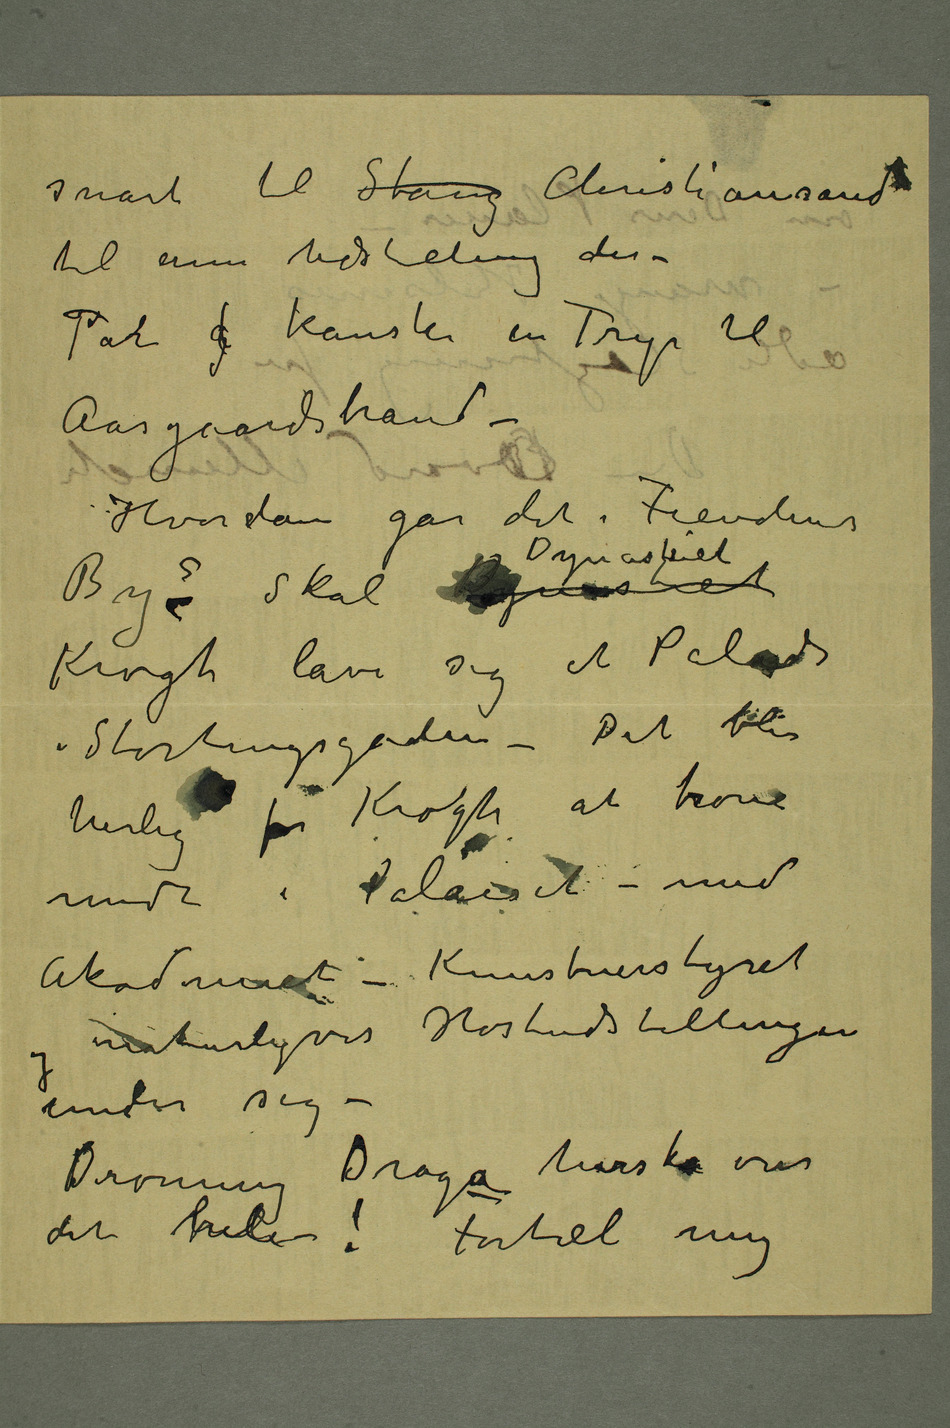 snart til Stang Christiansand
til min Udstilling der –
Tar jeg kanske en Trip til
Aasgaardstrand –
Hvordan går det i Fiendens
By? Skal Dynastiet Dynastiet
Krogh lave sig et Palads
i Stortingsgaden – Det blir
herlig for Krogh at trone
midt i Palaiset – med
Akademiet – Kunstnerstyret
og naturligvis Høstudstillingen
under sig –
Droning Draga herske over
det hele – ! Fortæl mig